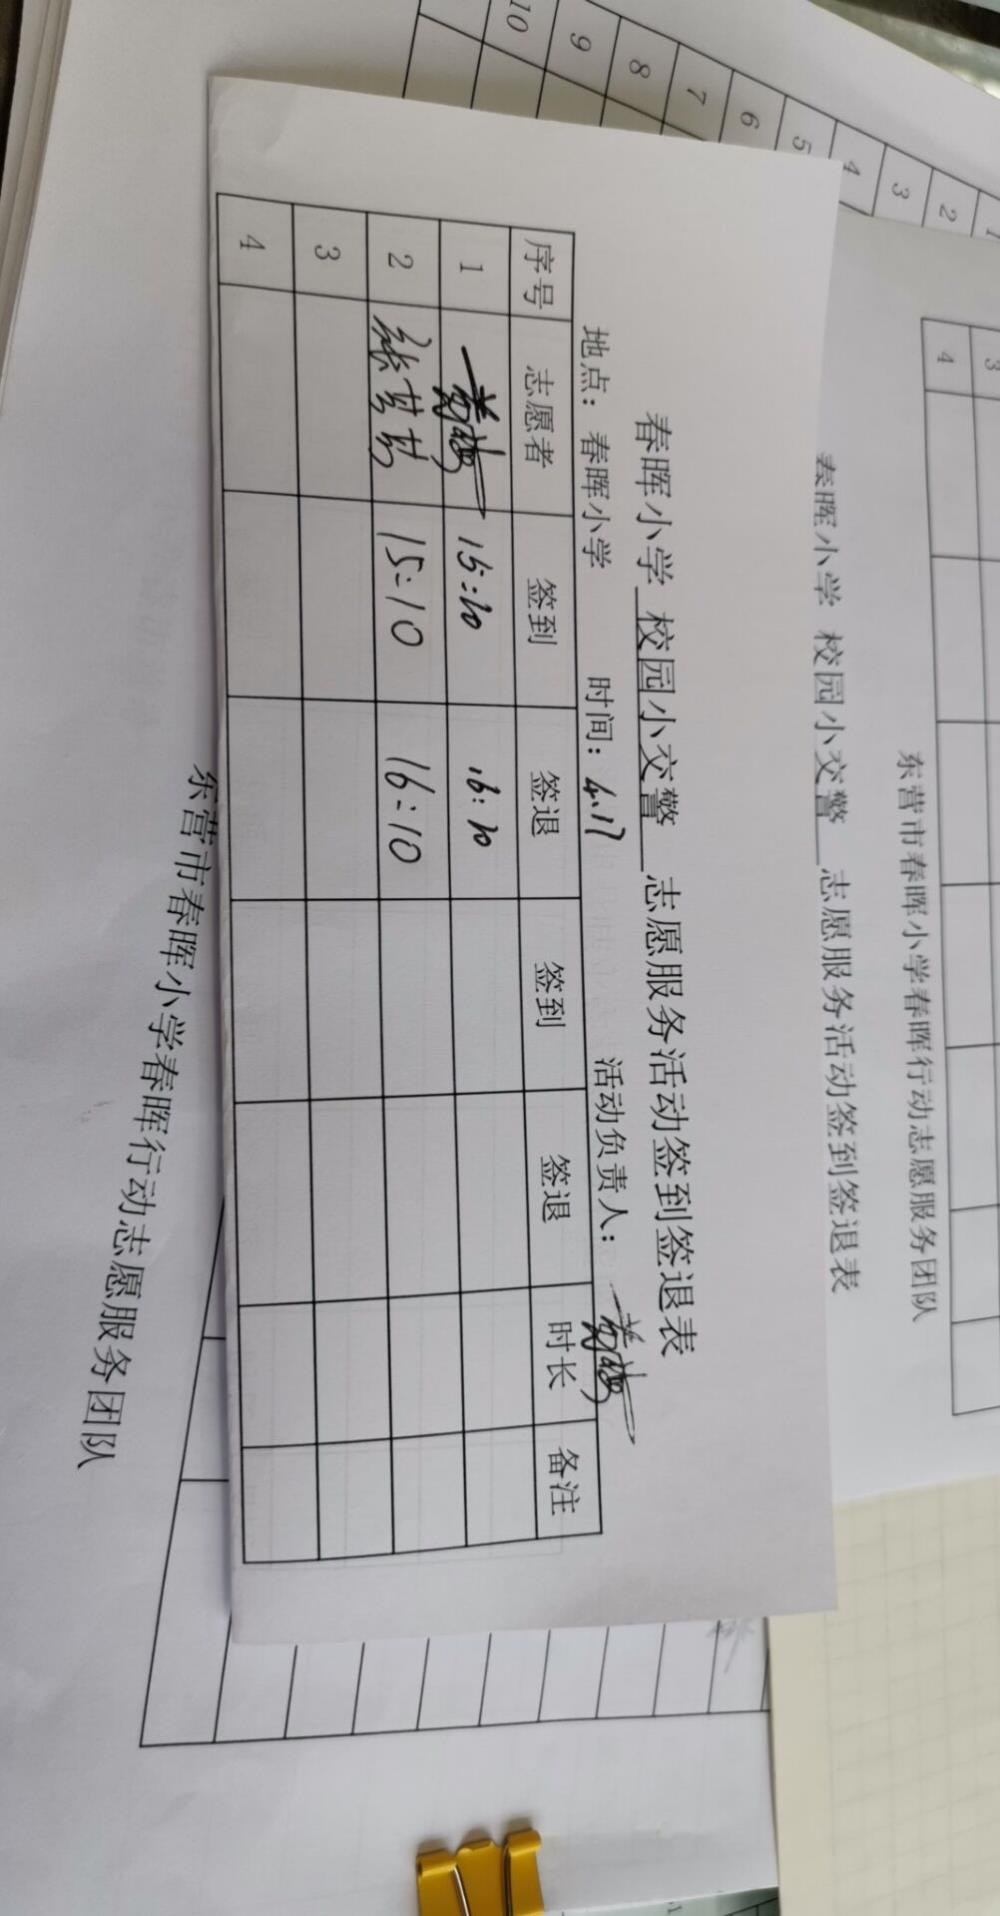 春晖小学 校园小交警 志愿服务活动签到签退表
地点：春晖小学 时间：4.17 活动负责人：
序号 志愿者 签到 签退 签到 签退 时长 备注
1 15:10 16:10
2 张苗苗 15:10 16:10
3
4
东营市春晖小学春晖行动志愿服务团队
3
4
东营市春晖小学春晖行动志愿服务团队
春晖小学 校园小交警 志愿服务活动签到签退表
1
2
3
4
5
6
7
8
9
10